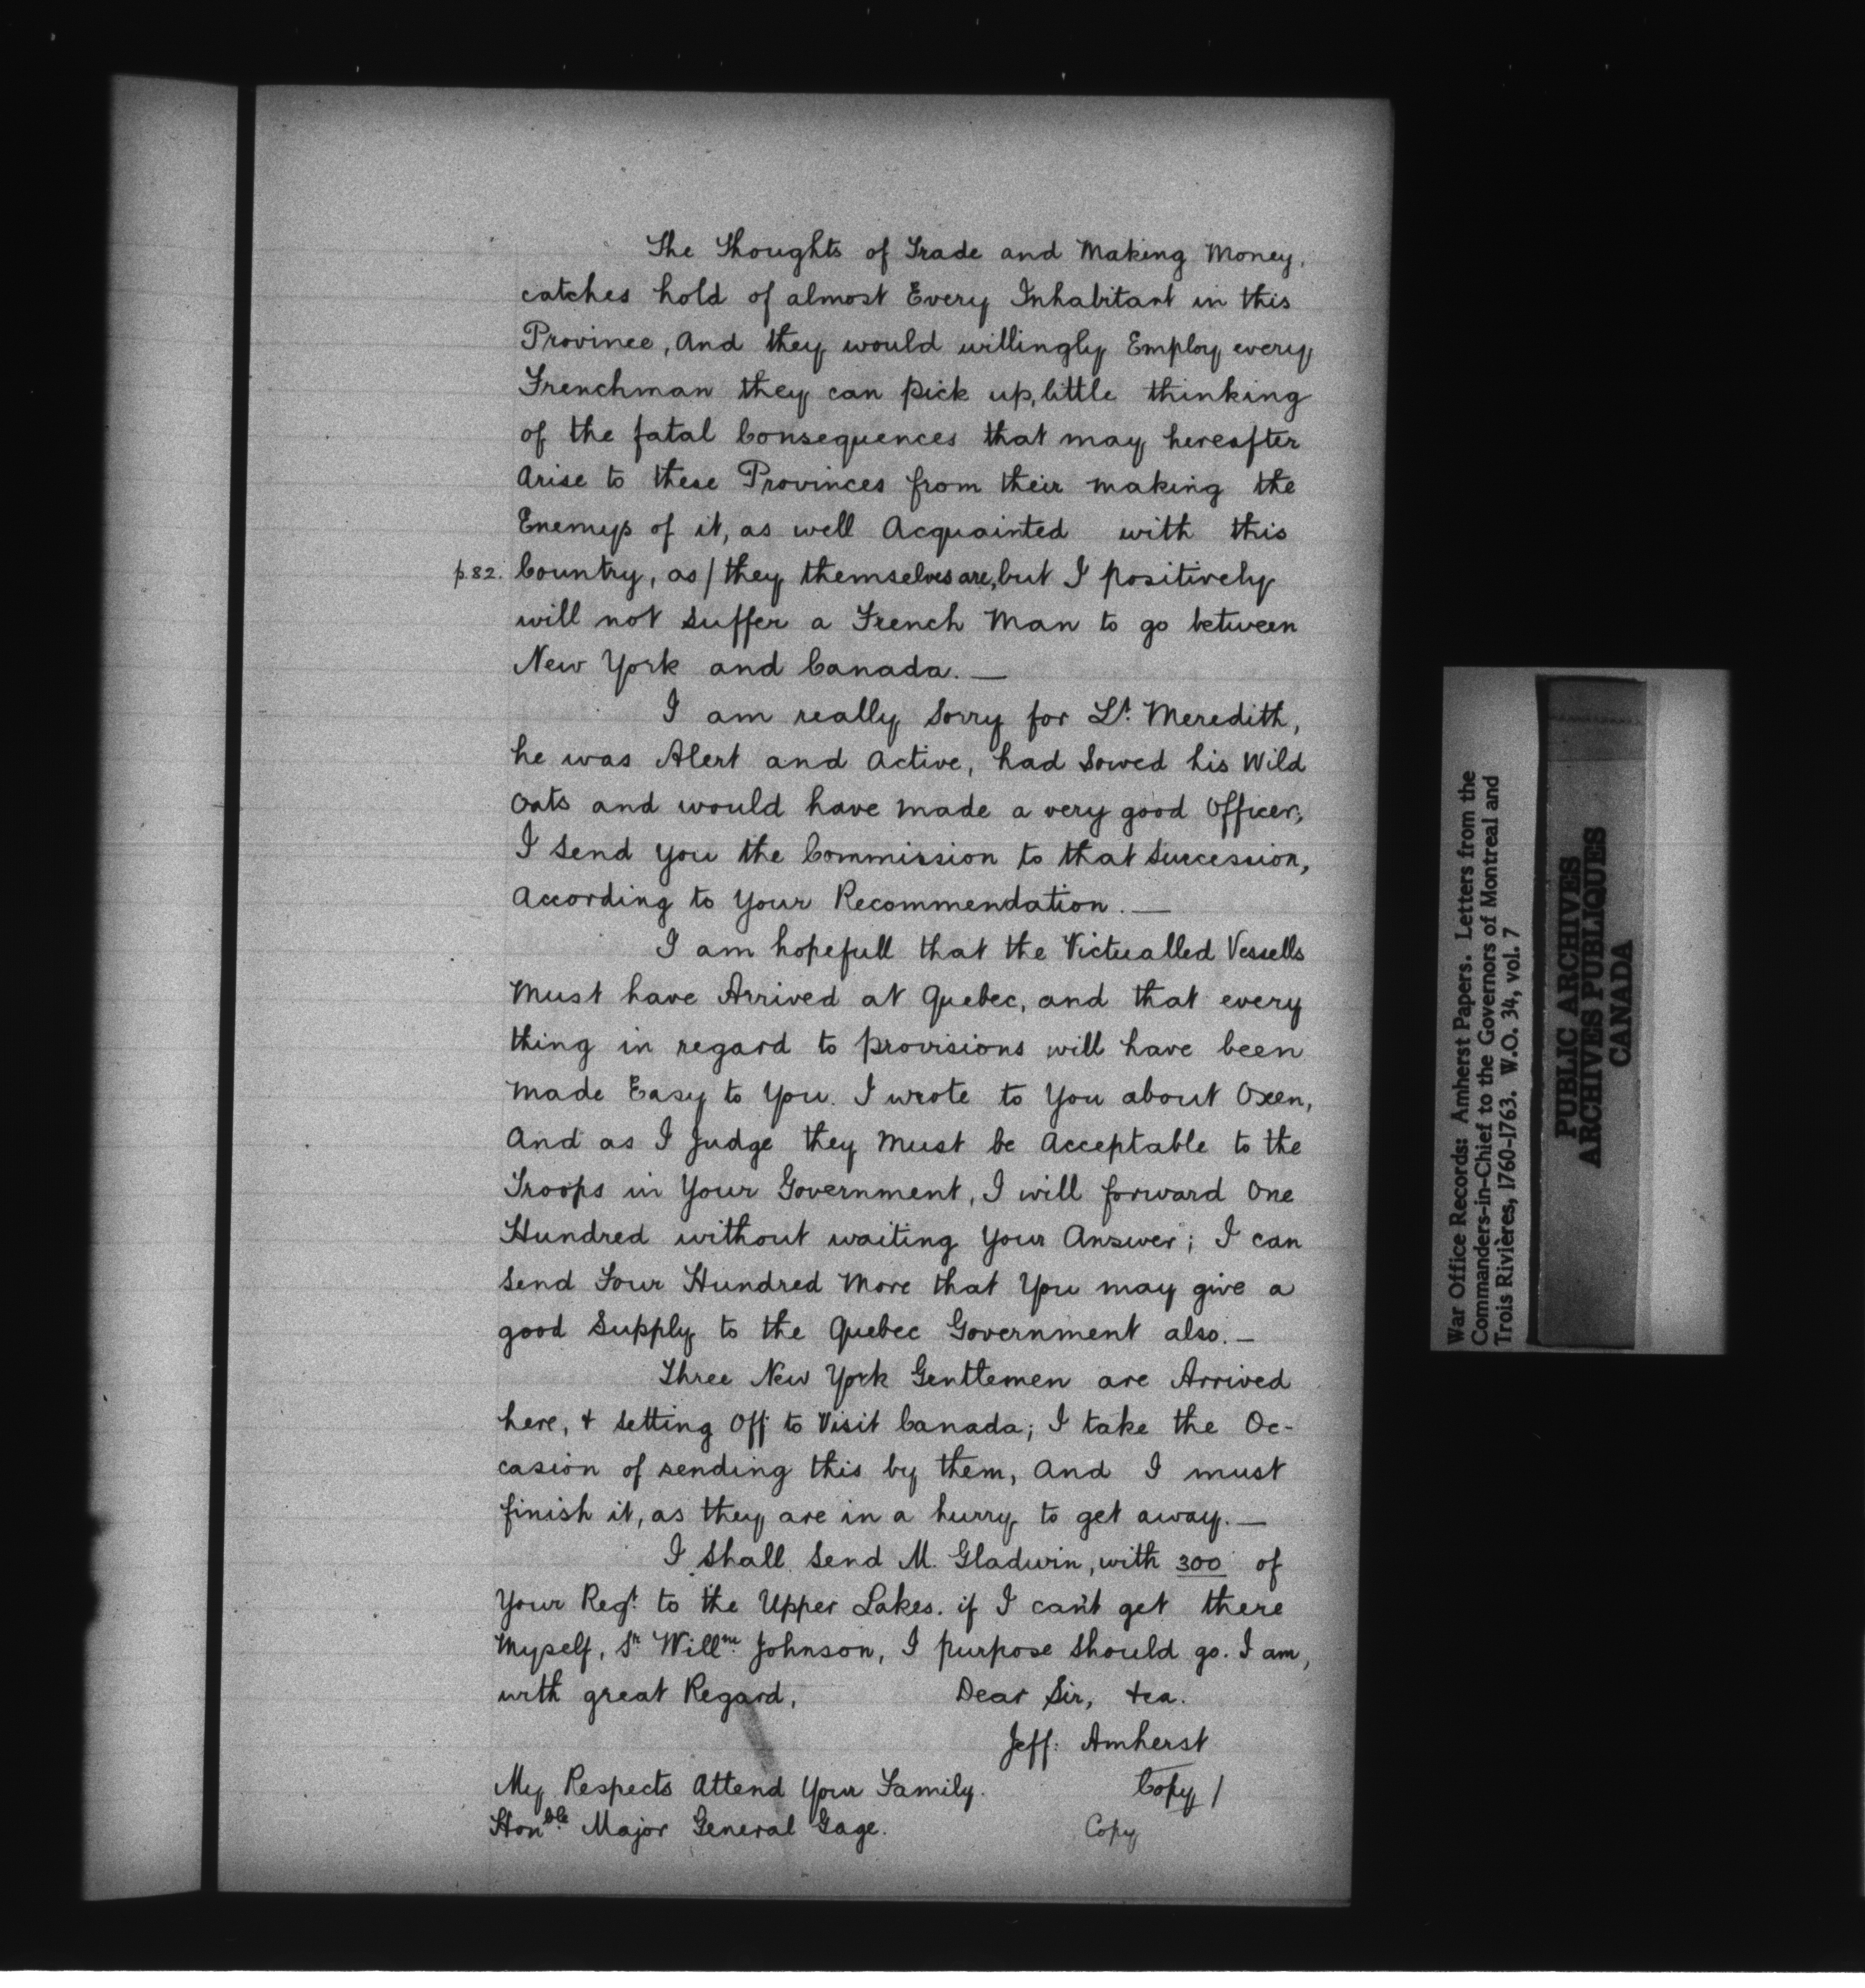 The Thoughts of Trade and Making Money,
catches hold of almost Every Inhabitant in this
Province, And they would willingly Employ every
Frenchman they can pick up, little thinking
of the fatal Consequences that may hereafter
Arise to these Provinces from their making the
Enemys of it, as well Acquainted with this
p.82. Country, as / they themselves are, but I positively
will not suffer a French Man to go between
New York and Canada. —
I am really Sorry for Lt. Meredith,
he was Alert and Active, had Sowed his Wild
Oats and would have made a very good Officer;
I Send you the Commission to that Succession,
According to Your Recommendation. —
I am hopefull that the Victualled Vessells
Must have Arrived at Quebec, and that every
thing in regard to provisions will have been
made Easy to You. I wrote to You about Oxen,
And as I Judge they Must be Acceptable to the
Troops in Your Government, I will forward One
Hundred without waiting Your Answer; I can
Send Four Hundred More that You may give a
good Supply to the Quebec Government also. —
Three New York Gentlemen are Arrived
here, & Setting Off to Visit Canada; I take the Oc-
casion of sending this by them, And I must
finish it, as they are in a hurry to get away. —
I Shall Send M. Gladwin, with 300 of
Your Regt. to the Upper Lakes. if I can't get there
Myself, Sr Willm. Johnson, I purpose Should go. I am,
with great Regard, Dear Sir, &ca.
Jeff: Amherst
My Respects Attend Your Family. Copy /
Honble. Major General Gage. Copy
War Office Records: Amherst Papers. Letters from the
Commanders-in-Chief to the Governors of Montreal and
Trois Rivières, 1760-1763. W.O. 34, vol. 7
PUBLIC ARCHIVES
ARCHIVES PUBLIQUES
CANADA